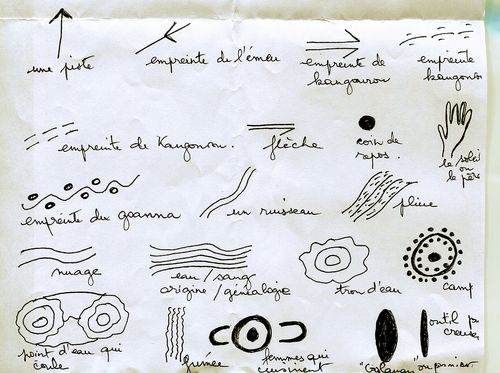 une piste
empreinte de l'émeu
empreinte de
kangourou
empreinte
kangourou
empreinte de Kangourou.
flèche
coin de
repos.
le soleil
ou
le père
empreinte du goanna
un ruisseau
pluie
nuage
eau/sang
origine/généalogie
trou d'eau
camp
point d'eau qui
coule
fumée
femmes qui
cuisinent
ou panier
outil p
creuser